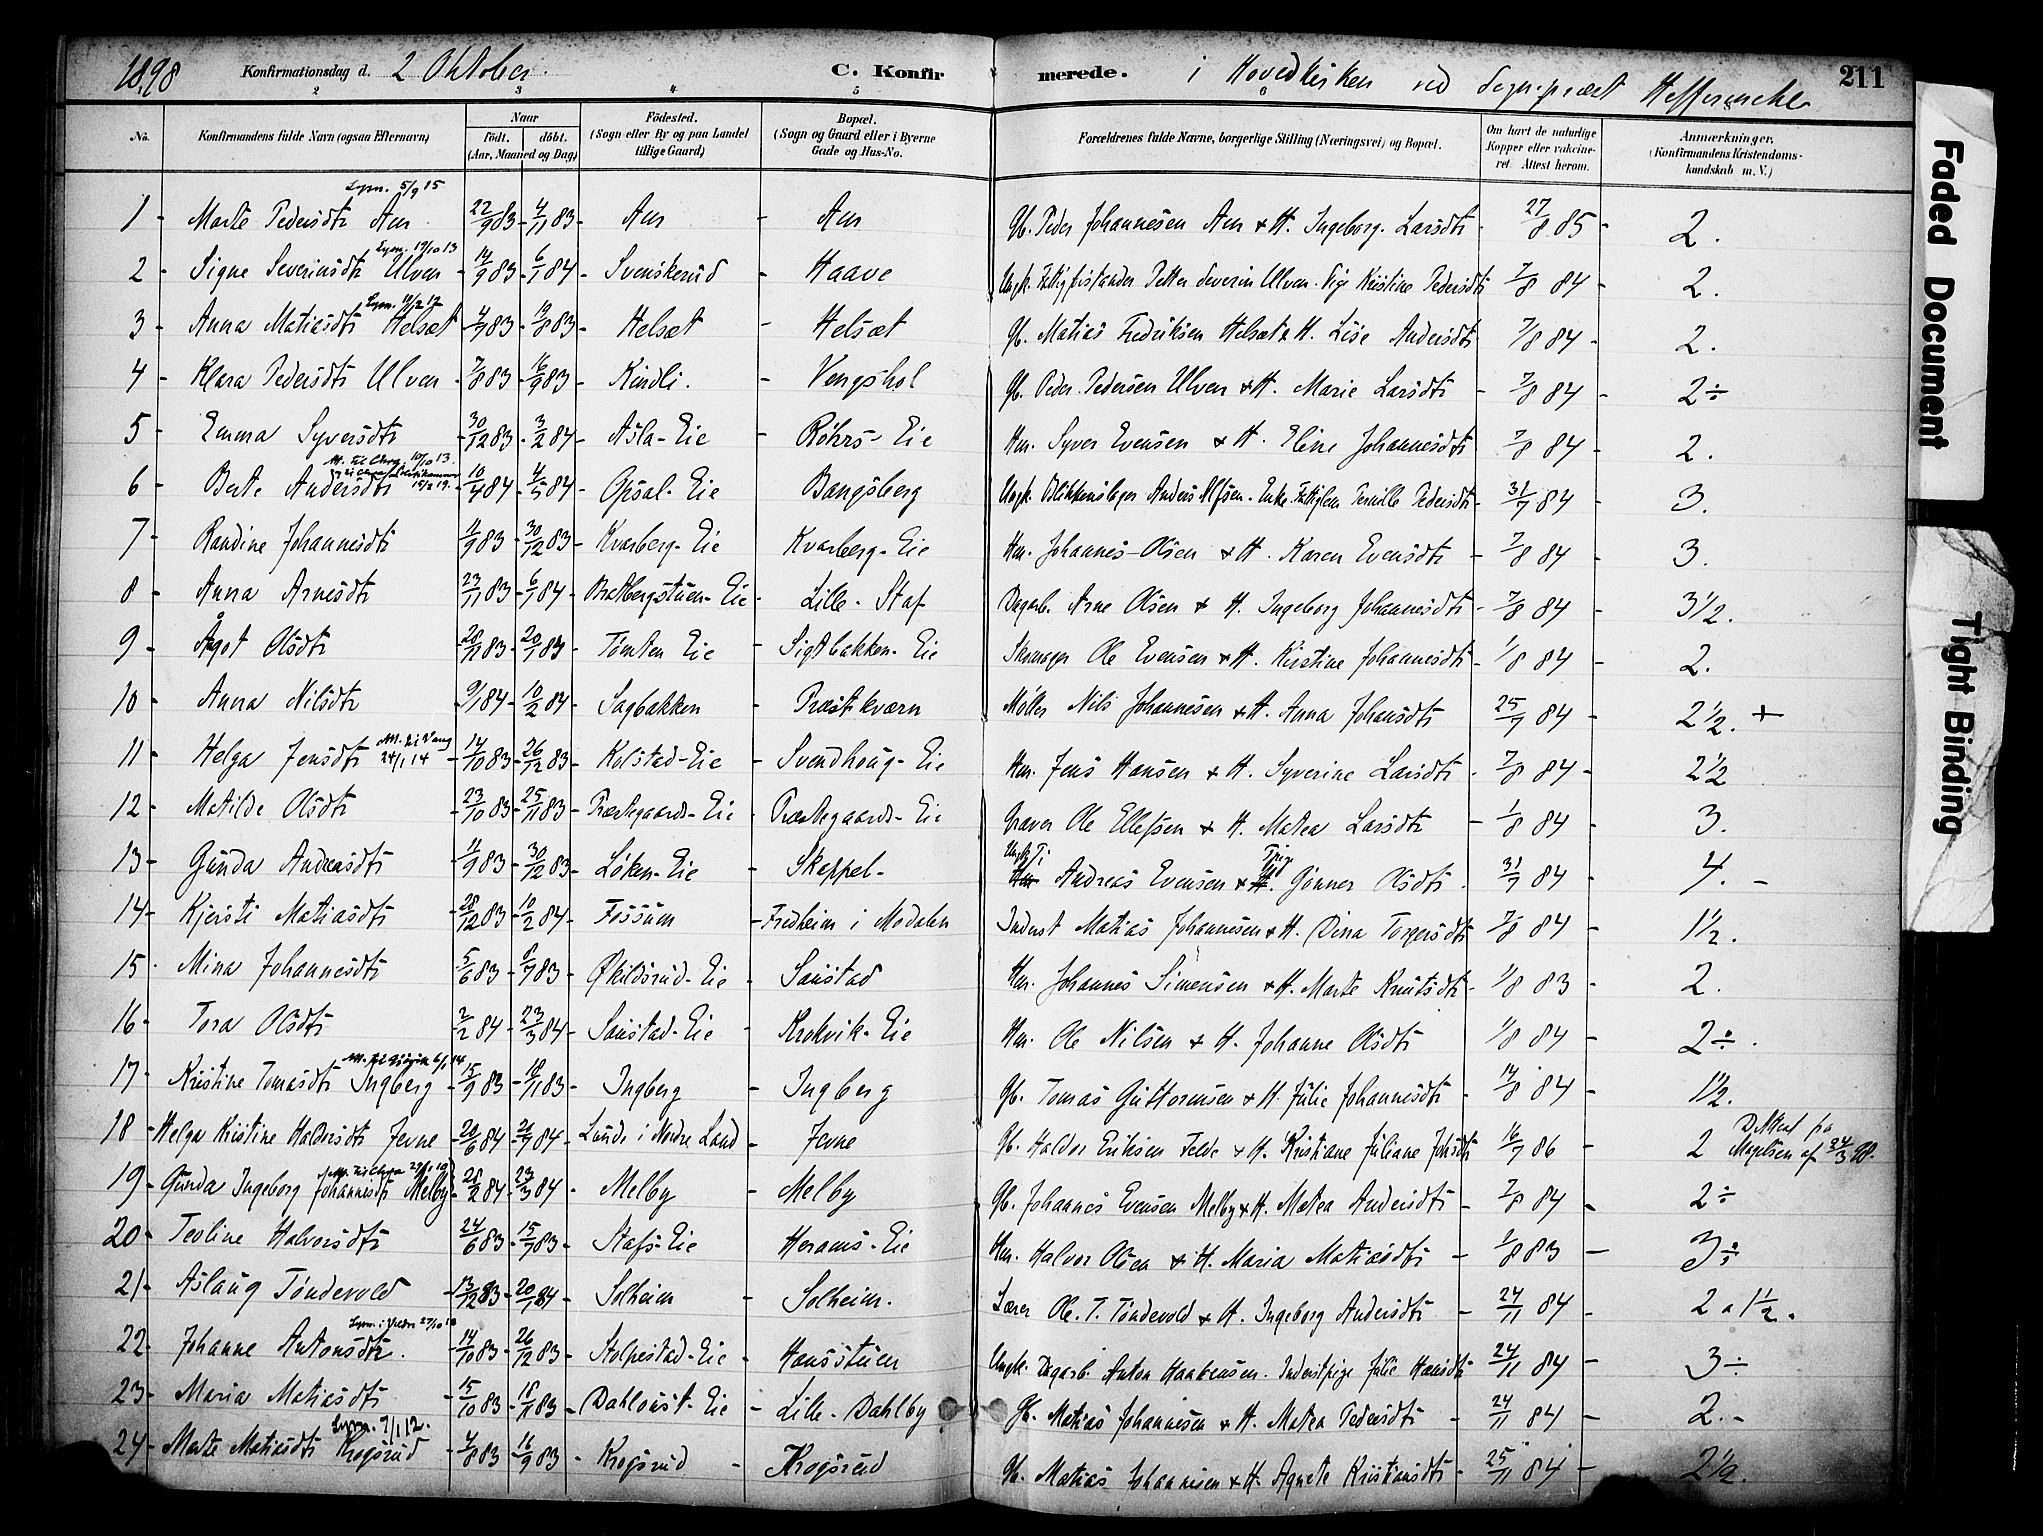 1898 Konfirmationsdag d. 2 Oktober. C. Konfirmerede. i Hovedkirken ved Sognepræst 211
2 3 4 5 6
No. Konfirmandens fulde Navn (ogsaa Efternavn) Naar født. døbt. (Aar, Maaned og Dag) Fødested. (Sogn eller By og paa Landet tillige Gaard) Bopæl. (Sogn og Gaard eller i Byerne Gade og Hus-No. Forældrenes fulde Navne, borgerlige Stilling (Næringsvei) og Bopæl. Om havt de naturlige Kopper eller vaccineret. Attest herom. Anmærkninger. (Konfirmandens Kristendomskundskab m. V.)
Lysn. 5/9 15
1 - Marte Pedersdtr Aur 22/9 83 - 4/11 83 - Aur - Aur Gb. Peder Johannesen Aur & H. Ingeborg Larsdtr 27/8 85 - 2.
Lysn. 19/10 13
2 - Signe Severinsdtr Ulven 14/9 83 - 6/1 84 - Svenskerud - Haave Ungk. Petter Severin Ulven. Pige Kristine Pedersdtr 7/8 84 - 2.
Lysn. 10/2 12
3 - Anna Matiasdtr Helset 4/7 83 - 19/8 83 - Helset - Helset Gb. Matias Fredriksen Helset & H. Lise Andersdtr 7/8 84 - 2.
4 - Klara Pedersdtr Ulven 7/8 83 - 16/9 83 - Kindli. - Vengshol Gb. Peder Pedersen Ulven & H. Marie Larsdtr - 7/8 84 - 2÷
5 - Emma Syversdtr 30/12 83 - 3/2 84 - Asla-Eie - Røhrs-Eie Hm. Syver Evensen & H. Eline Johannesdtr 7/8 84 - 2.
6 - Berte Andersdtr 10/4 84 - 4/5 84 - Opsal-Eie Bangsberg Ungk. Blikkenslager Anders Alfsen. Enke Pernille Pedersdtr 31/7 84 - 3.
7 - Randine Johannesdtr 11/9 83 - 30/12 83 - Kvarberg-Eie Kvarberg-Eie Hm. Johannes Olsen & H. Karen Evensdtr - 7/8 84 - 3.
8 - Anna Arnesdtr 23/11 83 - 6/1 84 - Bratbergstuen-Eie - Lille-Staf Dagarb. Arne Olsen & H. Ingeborg Johannesdtr - 7/8 84 - 3½.
9 - Ågot Olsdtr 83 - 20/1 83 - Tomten Eie - Sigtbakken-Eie Skomager Ole Evensen & H. Kirstine Johannesdtr - 1/8 84 - 2.
10 - Anna Nilsdtr 9/1 84 - 10/2 84 - Sagbakken - Præstkværn Møller Nils Johannesen & H. Anna Johansdtr 25/7 84 - 2½. +
11 - Helga Jensdtr 14/10 83 - 26/12 83 - Kolstad-Eie - Svendhoug-Eie Hm. Jens Hansen & H. Syverine Larsdtr - 7/8 84 - 2½
12 - Matilde Olsdtr 23/10 83 - 25/11 83 - Præstegaards-Eie - Præstegaards-Eie Graver Ole Ellefsen & H. Matea Larsdtr - 1/8 84 - 3.
13 - Gunda Andreasdtr 11/9 83 - 30/12 83 - Løken-Eie - Skeppel- Ungk. Andreas Evensen & Pige Gønner Olsdtr 31/7 84 - 4. -
14 - Kjersti Matiasdtr 28/12 83 - 10/2 84 - Fossum - Fredheim i Modalen Inderst Matias Johannesen & H. Dina Torgersdtr 7/8 84 - 1½.
15 - Mina Johannesdtr 5/6 83 - 8/7 83 - Økildsrud-Eie - Saustad Hm. Johannes Simensen & H. Marte Knutsdtr - 1/8 83 - 2.
16 - Tora Olsdtr 2/2 84 - 23/3 84 - Saustad-Eie - Krokvik-Eie Hm. Ole Nilsen & H. Johanne Olsdtr 1/8 84 - 2÷.
17 - Kristine Tomasdtr Ingberg 15/9 83 - 18/11 83 - Ingberg - Ingberg Gb. Tomas Guttormsen & H. Julie Johannesdtr - 14/8 84 - 1½.
18 - Helga Kristine Haldorsdtr Jevne 20/6 84 - 20/7 84 - Lunde i Nordre Land - Jevne Gb. Haldor Eriksen & H. Kristiane Juliane 16/7 86 - 2
19 - Gunda Ingeborg Johannesdtr Melby 28/2 84 - 23/3 84 - Melby - Melby Gb. Johannes Evensen Melby & H. Matea Andersdtr - 7/8 84 - 2÷
20 - Teoline Halvorsdtr 24/6 83 - 15/7 83 - Stafs-Eie Horams-Eie Hm. Halvor Olsen & H. Maria Matiasdtr - 1/8 83 - 3÷
21 - Aslaug Tøndevold 13/12 83 - 20/1 84 - Solheim - Solheim. Lærer Ole T. Tøndevold & H. Ingeborg Andersdtr - 24/11 84 - 2 a 1½.
22 - Johanne Antonsdtr. 14/10 83 - 26/12 83 - Stolpestad-Eie - Hansstuen Ungk. Dagarb. Anton Haakensen. Inderstpige Julie Hansdtr 24/11 84 - 3÷
23 - Maria Matiasdtr - 15/10 83 - 18/11 83 - Dahlonst-Eie - Lille-Dahlby Gb. Matias Johannesen & H. Matea Pedersdtr - 24/11 84 - 2.-
Lysn. 7/1 12.
24 - Marte Matiasdtr Krogsrud - 4/8 83 - 16/9 83 - Krogsrud - Krogsrud Gb. Matias Johannesen & H. Agnete Kristiansdtr - 25/11 84 - 2½.
Faded Document
Tight Binding